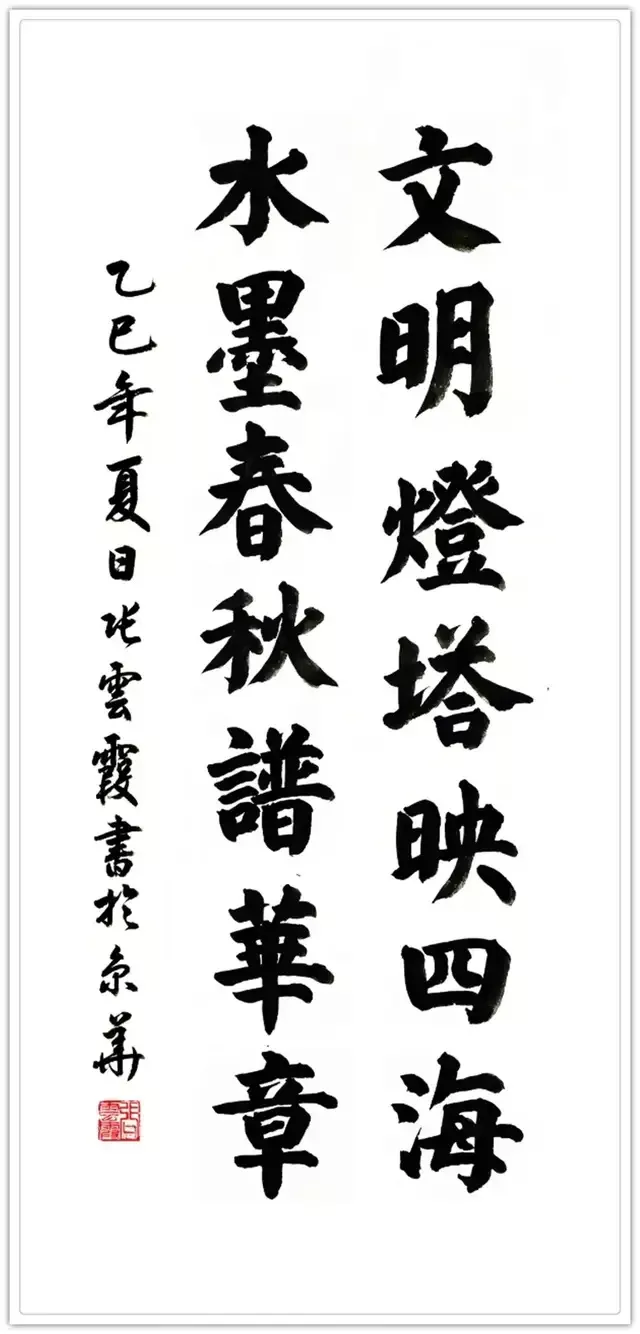 文明燈塔映四海
水墨春秋譜華章
乙巳年夏日张雲霞書於京華